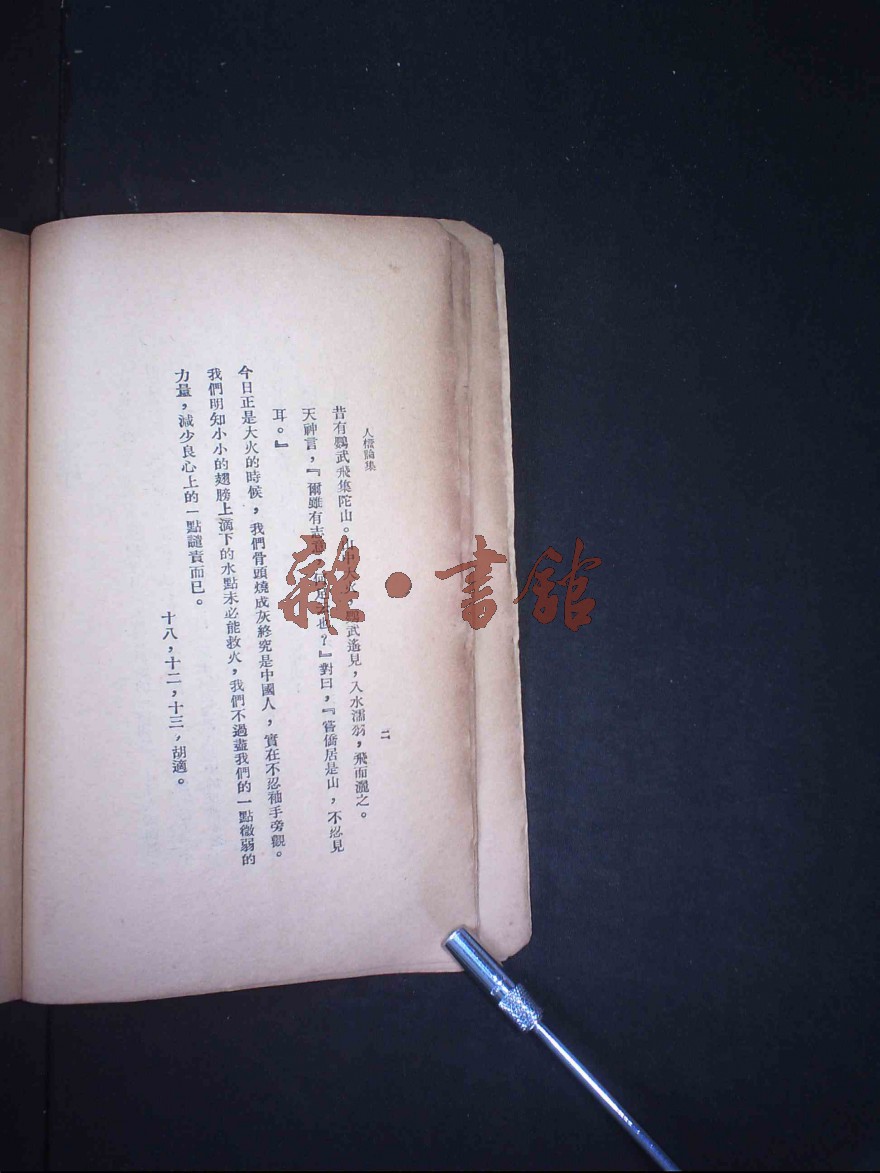 人權論集
二
昔有鸚武飛集陀山。山中大火，鸚武遙見，入水濡羽，飛而灑之。
天神言，『爾雖有志意，何足云也？』對曰，『嘗僑居是山，不忍見
耳。』
今日正是大火的時候，我們骨頭燒成灰終究是中國人，實在不忍袖手旁觀。
我們明知小小的翅膀上滴下的水點未必能救火，我們不過盡我們的一點微弱的
力量，減少良心上的一點譴責而已。
十八，十二，十三，胡適。
雜·書館